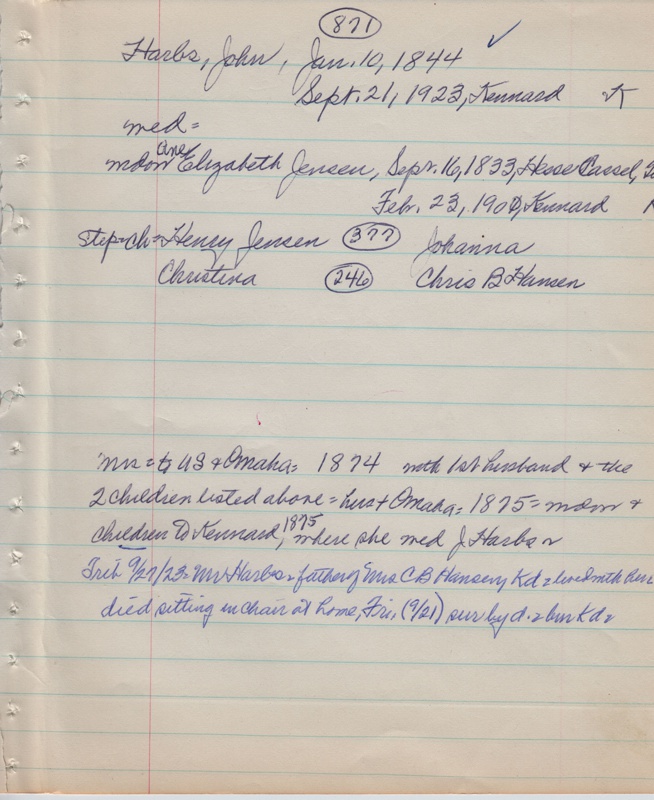 871
Harbs, John, Jan. 10, 1844 ✓
Sept. 21, 1923, Kennard K
med =
mdow Ane Elizabeth Jensen, Sept. 16, 1833, Hesse Cassel,
Feb. 23, 190 , Kennard
step-ch = Henry Jensen 377 Johanna
Christina 246 Chris B Hansen
Mrs = to US & Omaha = 1874 with 1st husband & the
2 children listed above = hus + Omaha = 1875 = mdow &
children to Kennard, 1875 where she med J. Harbs
Trib 9/27/23 = Mr Harbs = father of Mrs C B Hansen, Kd = lived with her
died sitting in chair at home, Fri, (9/21) sur by d. = bur Kd